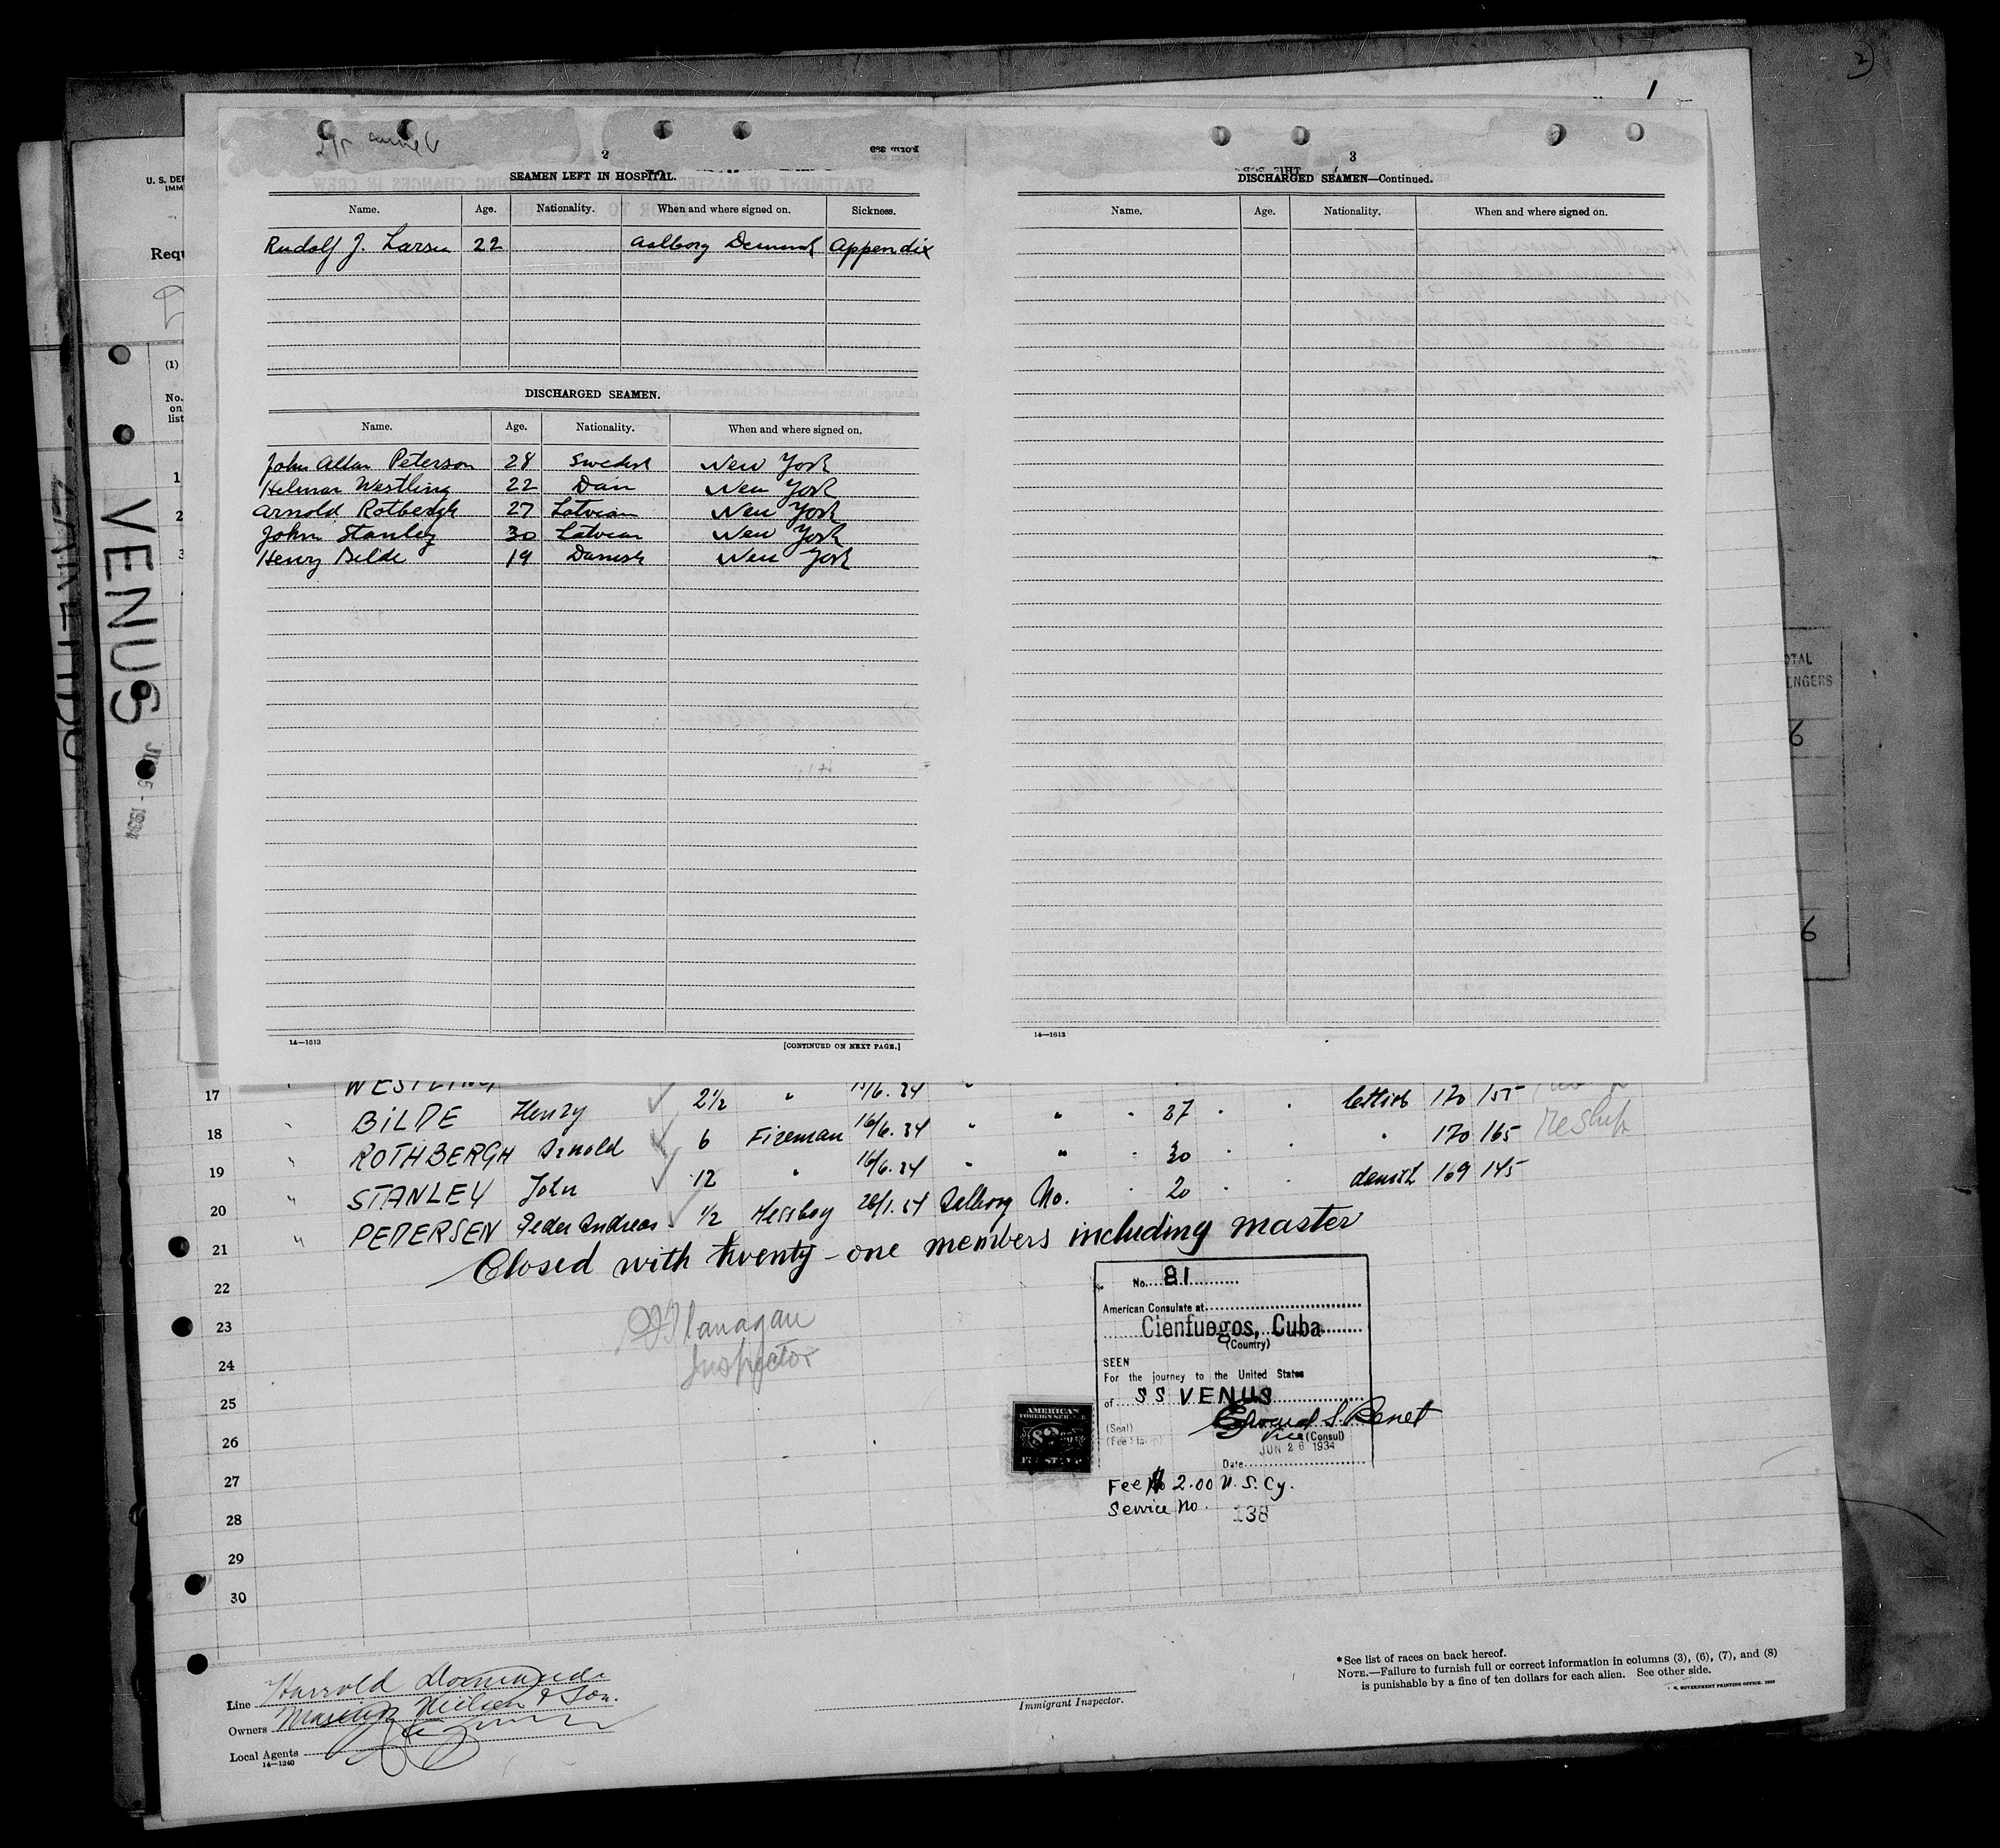 2
1
2
SEAMEN LEFT IN HOSPITAL.
Name. Age. Nationality. When and where signed on. Sickness.
Rudolf J. Larsen 22 Aalborg Denmark Appendix
DISCHARGED SEAMEN.
Name. Age. Nationality. When and where signed on.
John Allan Peterson 28 Swedish New York
Helmar Westling 22 Dan New York
Arnold Rotbergh 27 Latvian New York
John Stanley 30 Latvian New York
Henry Bilde 19 Danish New York
14—1613 [CONTINUED ON NEXT PAGE.]
3
DISCHARGED SEAMEN—Continued.
Name. Age. Nationality. When and where signed on.
14—1613
U. S. DE
IMM
Requ
(1)
No.
on
list
1
2
3
VENUS
5 - 1934
OTAL
ENGERS
6
6
17 WESTLING
18 " BILDE Henry 2½ " 15/6.34 " 37 lettish 170 155
19 " ROTHBERGH Arnold 6 Fireman 16/6.34 " " 30 " 170 165 Reship
20 " STANLEY John 12 " 16/6.34 " " 20 danish 169 145
21 " PEDERSEN Peder Andreas ½ Messboy 26/1.34 Aalborg No.
Closed with twenty-one members including master
22
23
24
25
26
27
28
29
30
Flanagan
Inspector
No. 81
American Consulate at
Cienfuegos, Cuba
(Country)
SEEN
For the journey to the United States
of SS VENUS
(Seal) Edward S. Benet
(Fee Stamp) Vice (Consul)
JUN 26 1934
Date
AMERICAN
FOREIGN SERVICE
$2
FEE STAMP
Fee No 2.00 U.S.Cy.
Service No. 138
Line Harrold
Owners Nielsen & Son.
Local Agents
14—1240
Immigrant Inspector.
* See list of races on back hereof.
NOTE.—Failure to furnish full or correct information in columns (3), (6), (7), and (8)
is punishable by a fine of ten dollars for each alien. See other side.
GOVERNMENT PRINTING OFFICE